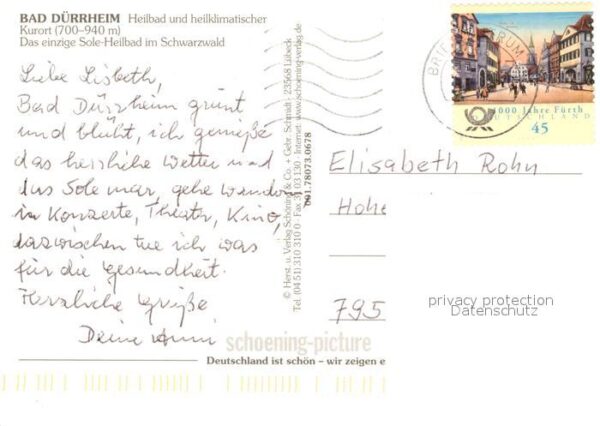 BAD DÜRRHEIM Heilbad und heilklimatischer
Kurort (700–940 m)
Das einzige Sole-Heilbad im Schwarzwald
Liebe Lisbeth,
Bad Dürrheim grünt
und blüht, ich genieße
das herrliche Wetter und
das Solemar, gehe wandern
in Konzerte, Theater, Kino,
dazwischen tue ich was
für die Gesundheit.
Herzliche Grüße
Deine Anni
© Herst. u. Verlag Schöning & Co. + Gebr. Schmidt · 23568 Lübeck
Tel. (04 51) 310 310 · Fax 31 03 130 · Internet: www.schoening-verlag.de
001.78073.0628
schoening-picture
Deutschland ist schön – wir zeigen e
BRIEFZENTRUM
1000 Jahre Fürth
DEUTSCHLAND
45
Elisabeth Rohn
Hohe
795
privacy protection
Datenschutz